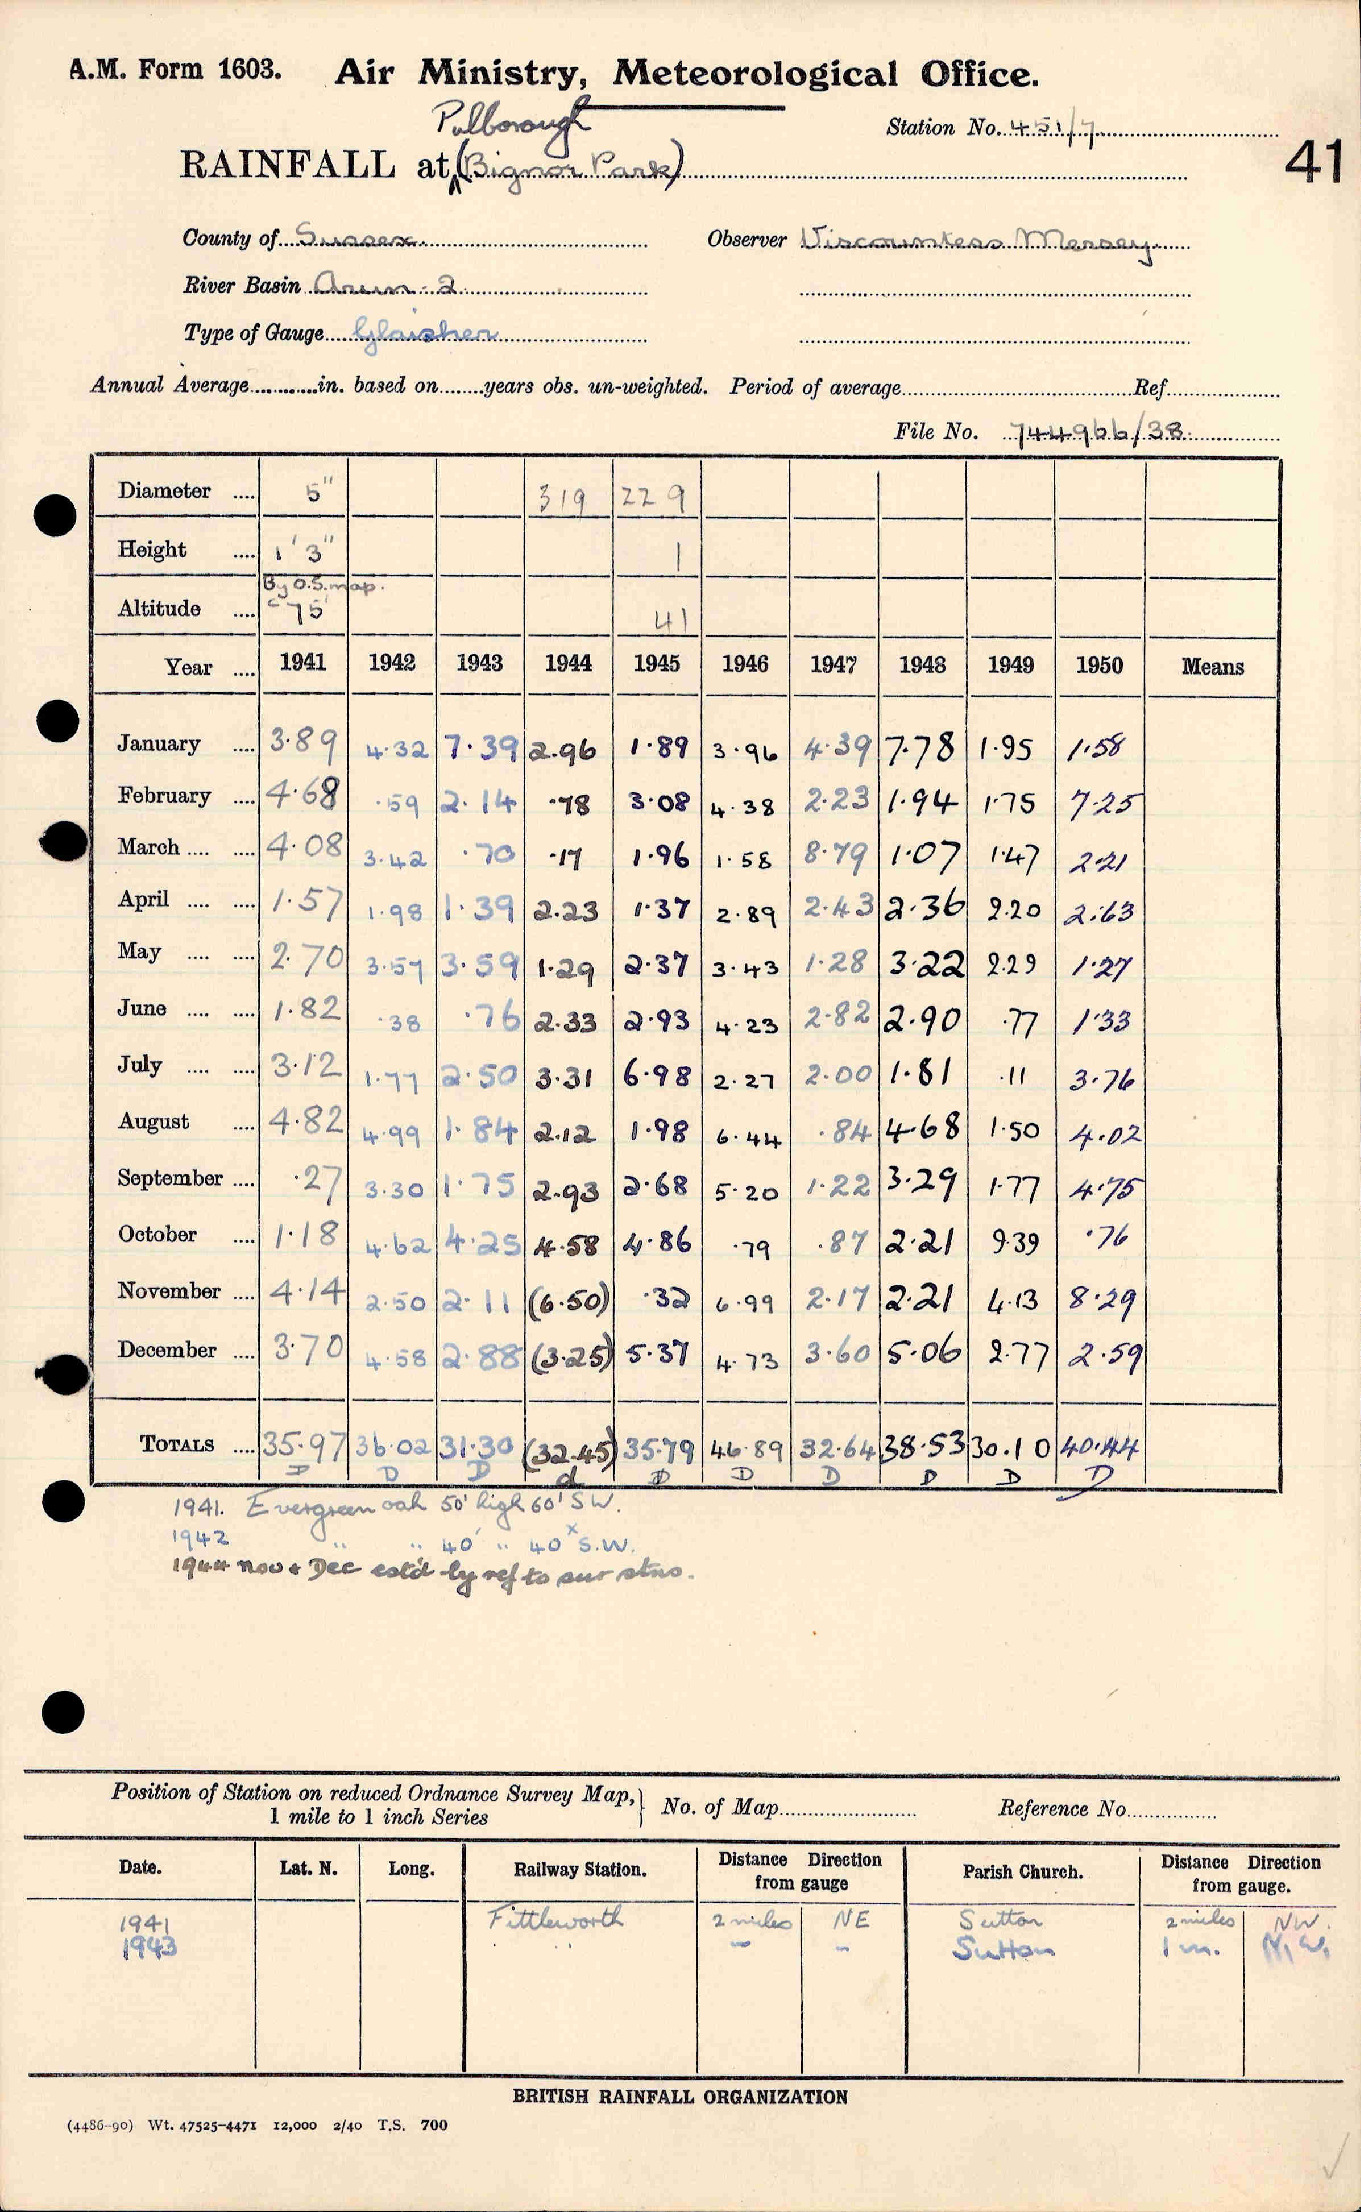 A.M. Form 1603. Air Ministry, Meteorological Office.
Pulborough
Station No. 451/7
RAINFALL at (Bignor Park)
41
County of Sussex. Observer Viscountess Mersey.
River Basin Arun - 2
Type of Gauge Glaisher
Annual Average............in. based on.......years obs. un-weighted. Period of average.......... Ref..........
File No. 744966/38.
Diameter .... 5" 319 229
Height .... 1' 3" 1
By O.S. map.
Altitude .... 75' 41
Year .... 1941 1942 1943 1944 1945 1946 1947 1948 1949 1950 Means
January .... 3.89 4.32 7.39 2.96 1.89 3.96 4.39 7.78 1.95 1.58
February .... 4.68 .59 2.14 .78 3.08 4.38 2.23 1.94 1.75 7.25
March .... .... 4.08 3.42 .70 .17 1.96 1.58 8.79 1.07 1.47 2.21
April .... .... 1.57 1.98 1.39 2.23 1.37 2.89 2.43 2.36 2.20 2.63
May .... .... 2.70 3.57 3.59 1.29 2.37 3.43 1.28 3.22 2.29 1.27
June .... .... 1.82 .38 .76 2.33 2.93 4.23 2.82 2.90 .77 1.33
July .... .... 3.12 1.77 2.50 3.31 6.98 2.27 2.00 1.81 .11 3.76
August .... 4.82 4.99 1.84 2.12 1.98 6.44 .84 4.68 1.50 4.02
September .... .27 3.30 1.75 2.93 2.68 5.20 1.22 3.29 1.77 4.75
October .... 1.18 4.62 4.25 4.58 4.86 .79 .87 2.21 9.39 .76
November .... 4.14 2.50 2.11 (6.50) .32 6.99 2.17 2.21 4.13 8.29
December .... 3.70 4.58 2.88 (3.25) 5.37 4.73 3.60 5.06 2.77 2.59
TOTALS .... 35.97 36.02 31.30 (32.45) 35.79 46.89 32.64 38.53 30.10 40.44
D D D d D D D D D D
1941. Evergreen oak 50' high 60' SW.
1942 " " 40' " 40 x S.W.
1944 Nov + Dec est'd by ref to sur stns.
Position of Station on reduced Ordnance Survey Map, } No. of Map.......... Reference No..........
1 mile to 1 inch Series
Date. Lat. N. Long. Railway Station. Distance Direction from gauge Parish Church. Distance Direction from gauge.
1941 Fittleworth 2 miles NE Sutton 2 miles NW.
1943 " " – – Sutton 1 m. N.W.
BRITISH RAINFALL ORGANIZATION
(4486-90) Wt. 47525-4471 12,000 2/40 T.S. 700